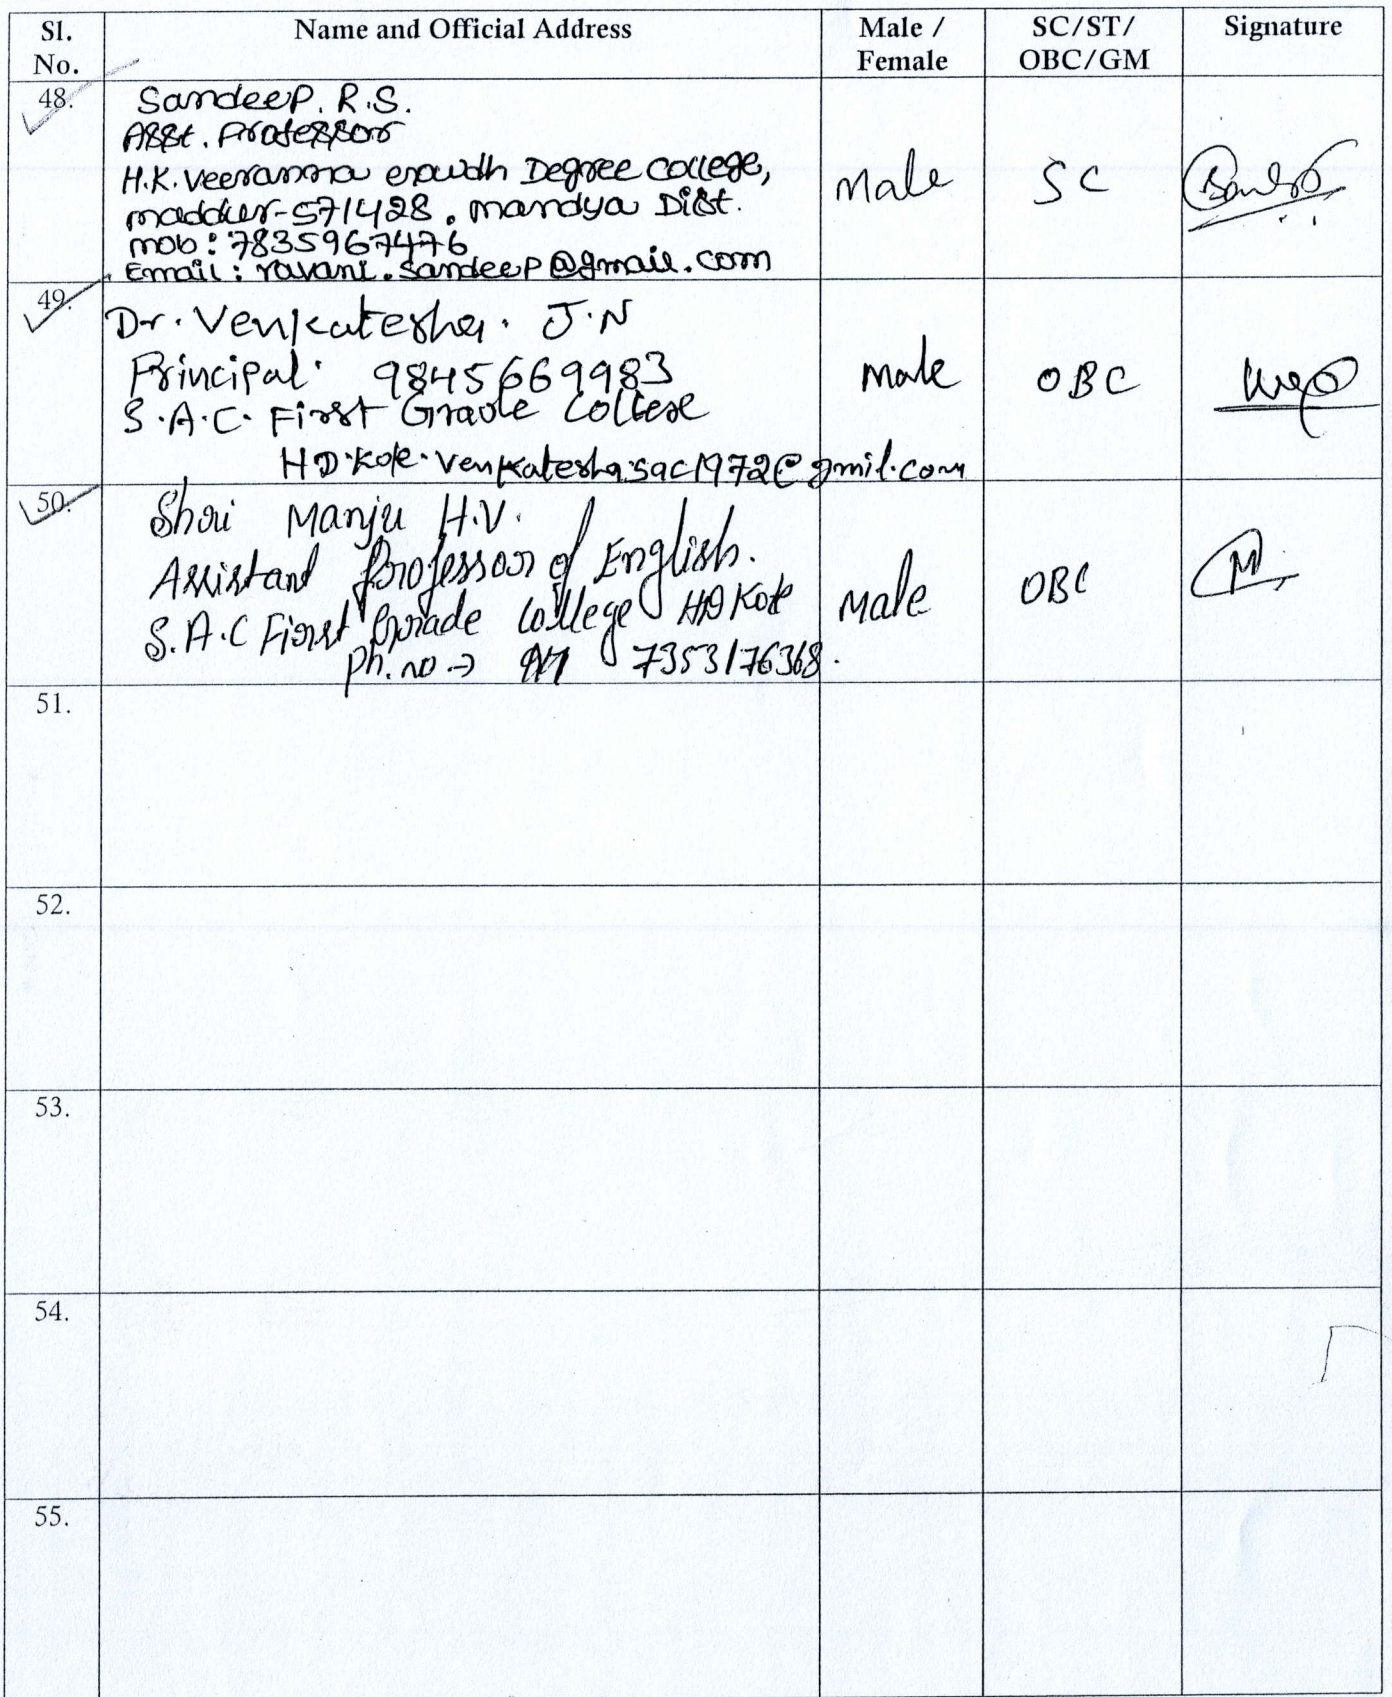 Sl. No. Name and Official Address Male / Female SC/ST/ OBC/GM Signature
48. Sandeep. R.S.
Asst. Professor
H.K. Veeranna Degree College,
maddur-571428. mandya Dist.
mob: 7835967476
Email: ravani.sandeep@gmail.com
Male SC
49. Dr. Venkatesha. J.N
Principal. 9845669983
S.A.C. First Grade College
HD.Kote. venkatesha.sac1972@gmil.com
Male OBC
50. Shri Manju H.V.
Assistant Professor of English.
S.A.C First Grade College HD Kote
Ph. no → 7353176368.
Male OBC
51.
52.
53.
54.
55.